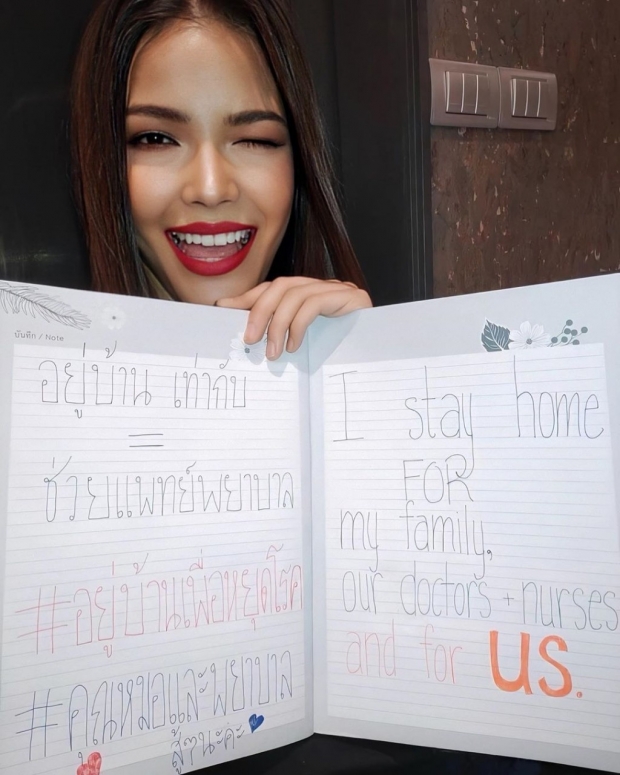 บันทึก / Note
อยู่บ้าน เท่ากับ
=
ช่วยแพทย์พยาบาล
#อยู่บ้านเพื่อหยุดโรค
#คุณหมอและพยาบาล
สู้ๆนะคะ
I stay home
FOR
my family,
our doctors + nurses
and for us.